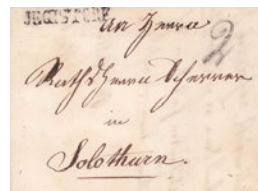 JEGISTORF
An Herrn
2
Rathsherrn Scherrer
in
Solothurn.